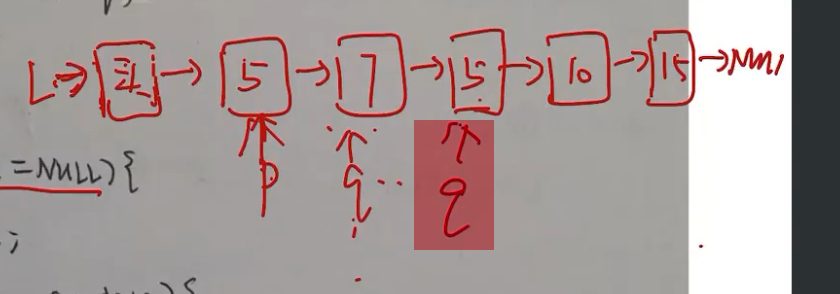 L → 头 → 5 → 7 → 5 → 10 → 15 → NULL
p q q
=NULL){
;